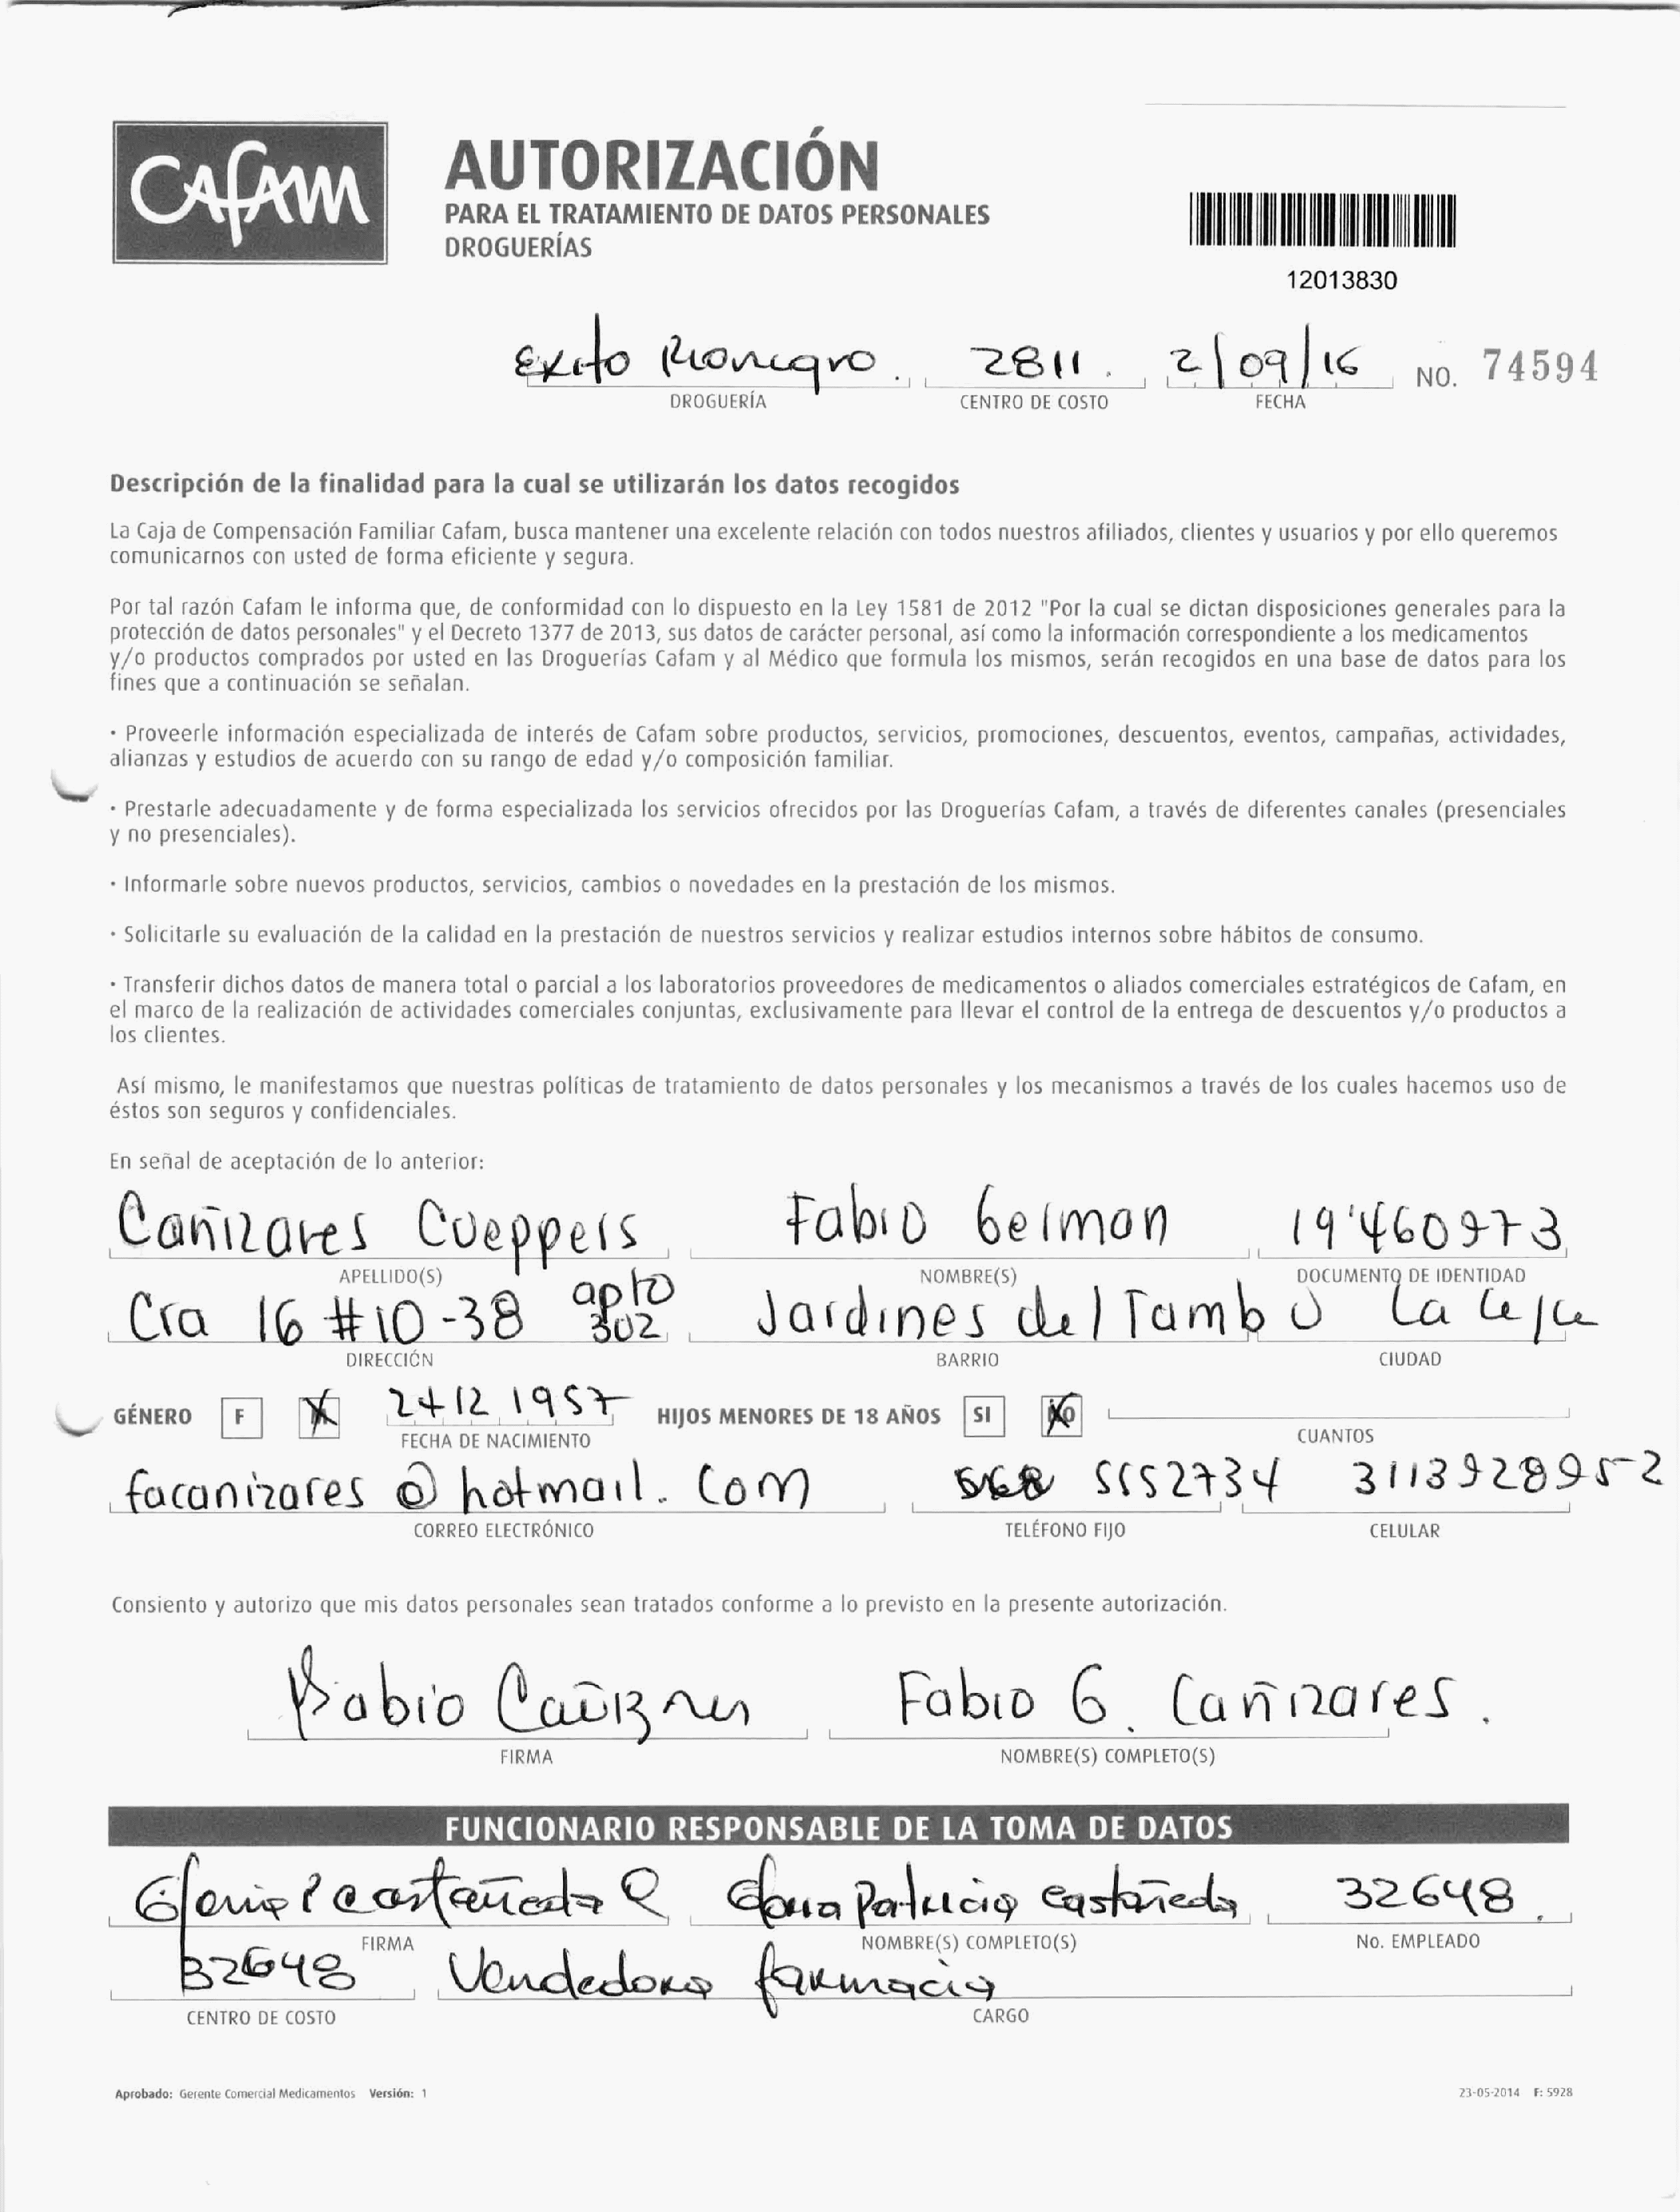 CAFAM
AUTORIZACIÓN
PARA EL TRATAMIENTO DE DATOS PERSONALES
DROGUERÍAS
12013830
Exito Rionegro. 2811. 2/09/16 NO. 74594
DROGUERÍA CENTRO DE COSTO FECHA
Descripción de la finalidad para la cual se utilizarán los datos recogidos
La Caja de Compensación Familiar Cafam, busca mantener una excelente relación con todos nuestros afiliados, clientes y usuarios y por ello queremos
comunicarnos con usted de forma eficiente y segura.
Por tal razón Cafam le informa que, de conformidad con lo dispuesto en la Ley 1581 de 2012 "Por la cual se dictan disposiciones generales para la
protección de datos personales" y el Decreto 1377 de 2013, sus datos de carácter personal, así como la información correspondiente a los medicamentos
y/o productos comprados por usted en las Droguerías Cafam y al Médico que formula los mismos, serán recogidos en una base de datos para los
fines que a continuación se señalan.
· Proveerle información especializada de interés de Cafam sobre productos, servicios, promociones, descuentos, eventos, campañas, actividades,
alianzas y estudios de acuerdo con su rango de edad y/o composición familiar.
· Prestarle adecuadamente y de forma especializada los servicios ofrecidos por las Droguerías Cafam, a través de diferentes canales (presenciales
y no presenciales).
· Informarle sobre nuevos productos, servicios, cambios o novedades en la prestación de los mismos.
· Solicitarle su evaluación de la calidad en la prestación de nuestros servicios y realizar estudios internos sobre hábitos de consumo.
· Transferir dichos datos de manera total o parcial a los laboratorios proveedores de medicamentos o aliados comerciales estratégicos de Cafam, en
el marco de la realización de actividades comerciales conjuntas, exclusivamente para llevar el control de la entrega de descuentos y/o productos a
los clientes.
Así mismo, le manifestamos que nuestras políticas de tratamiento de datos personales y los mecanismos a través de los cuales hacemos uso de
éstos son seguros y confidenciales.
En señal de aceptación de lo anterior:
Cañizares Cueppers Fabio German 19'460973
APELLIDO(S) NOMBRE(S) DOCUMENTO DE IDENTIDAD
Cra 16 #10-38 apto 302 Jardines del Tambo La Ceja
DIRECCIÓN BARRIO CIUDAD
GÉNERO F M 24 12 1957 HIJOS MENORES DE 18 AÑOS SI NO
FECHA DE NACIMIENTO CUANTOS
facanizares@hotmail.com 5552734 3113928952
CORREO ELECTRÓNICO TELÉFONO FIJO CELULAR
Consiento y autorizo que mis datos personales sean tratados conforme a lo previsto en la presente autorización.
Fabio Cañizares Fabio G. Cañizares.
FIRMA NOMBRE(S) COMPLETO(S)
FUNCIONARIO RESPONSABLE DE LA TOMA DE DATOS
Gloria P Castañeda R Gloria Patricia Castañeda 32648.
FIRMA NOMBRE(S) COMPLETO(S) No. EMPLEADO
32648 Vendedora farmacia
CENTRO DE COSTO CARGO
Aprobado: Gerente Comercial Medicamentos Versión: 1 23-05-2014 F: 5928